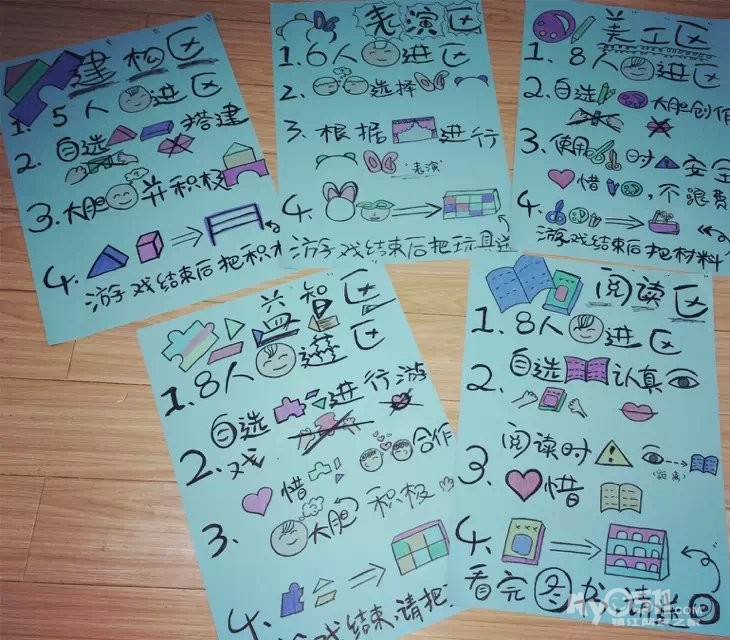 建构区
1. 5人进区
2. 自选搭建
3. 大胆并积极
4.
游戏结束后把积木
表演区
1. 6人进区
2. 选择
3. 根据进行
"表演"
4.
游戏结束后把玩具送
美工区
1. 8人进区
2. 自选大胆创作
3. 使用时安全
惜,不浪费
4.
游戏结束后把材料
益智区
1. 8人进区
自选进行游
2. 戏
惜合作
3. 大胆积极
4.
游戏结束,请把
阅读区
1. 8人进区
2. 自选认真
3. 阅读时
(距离)
惜
4.
看完图书请半回